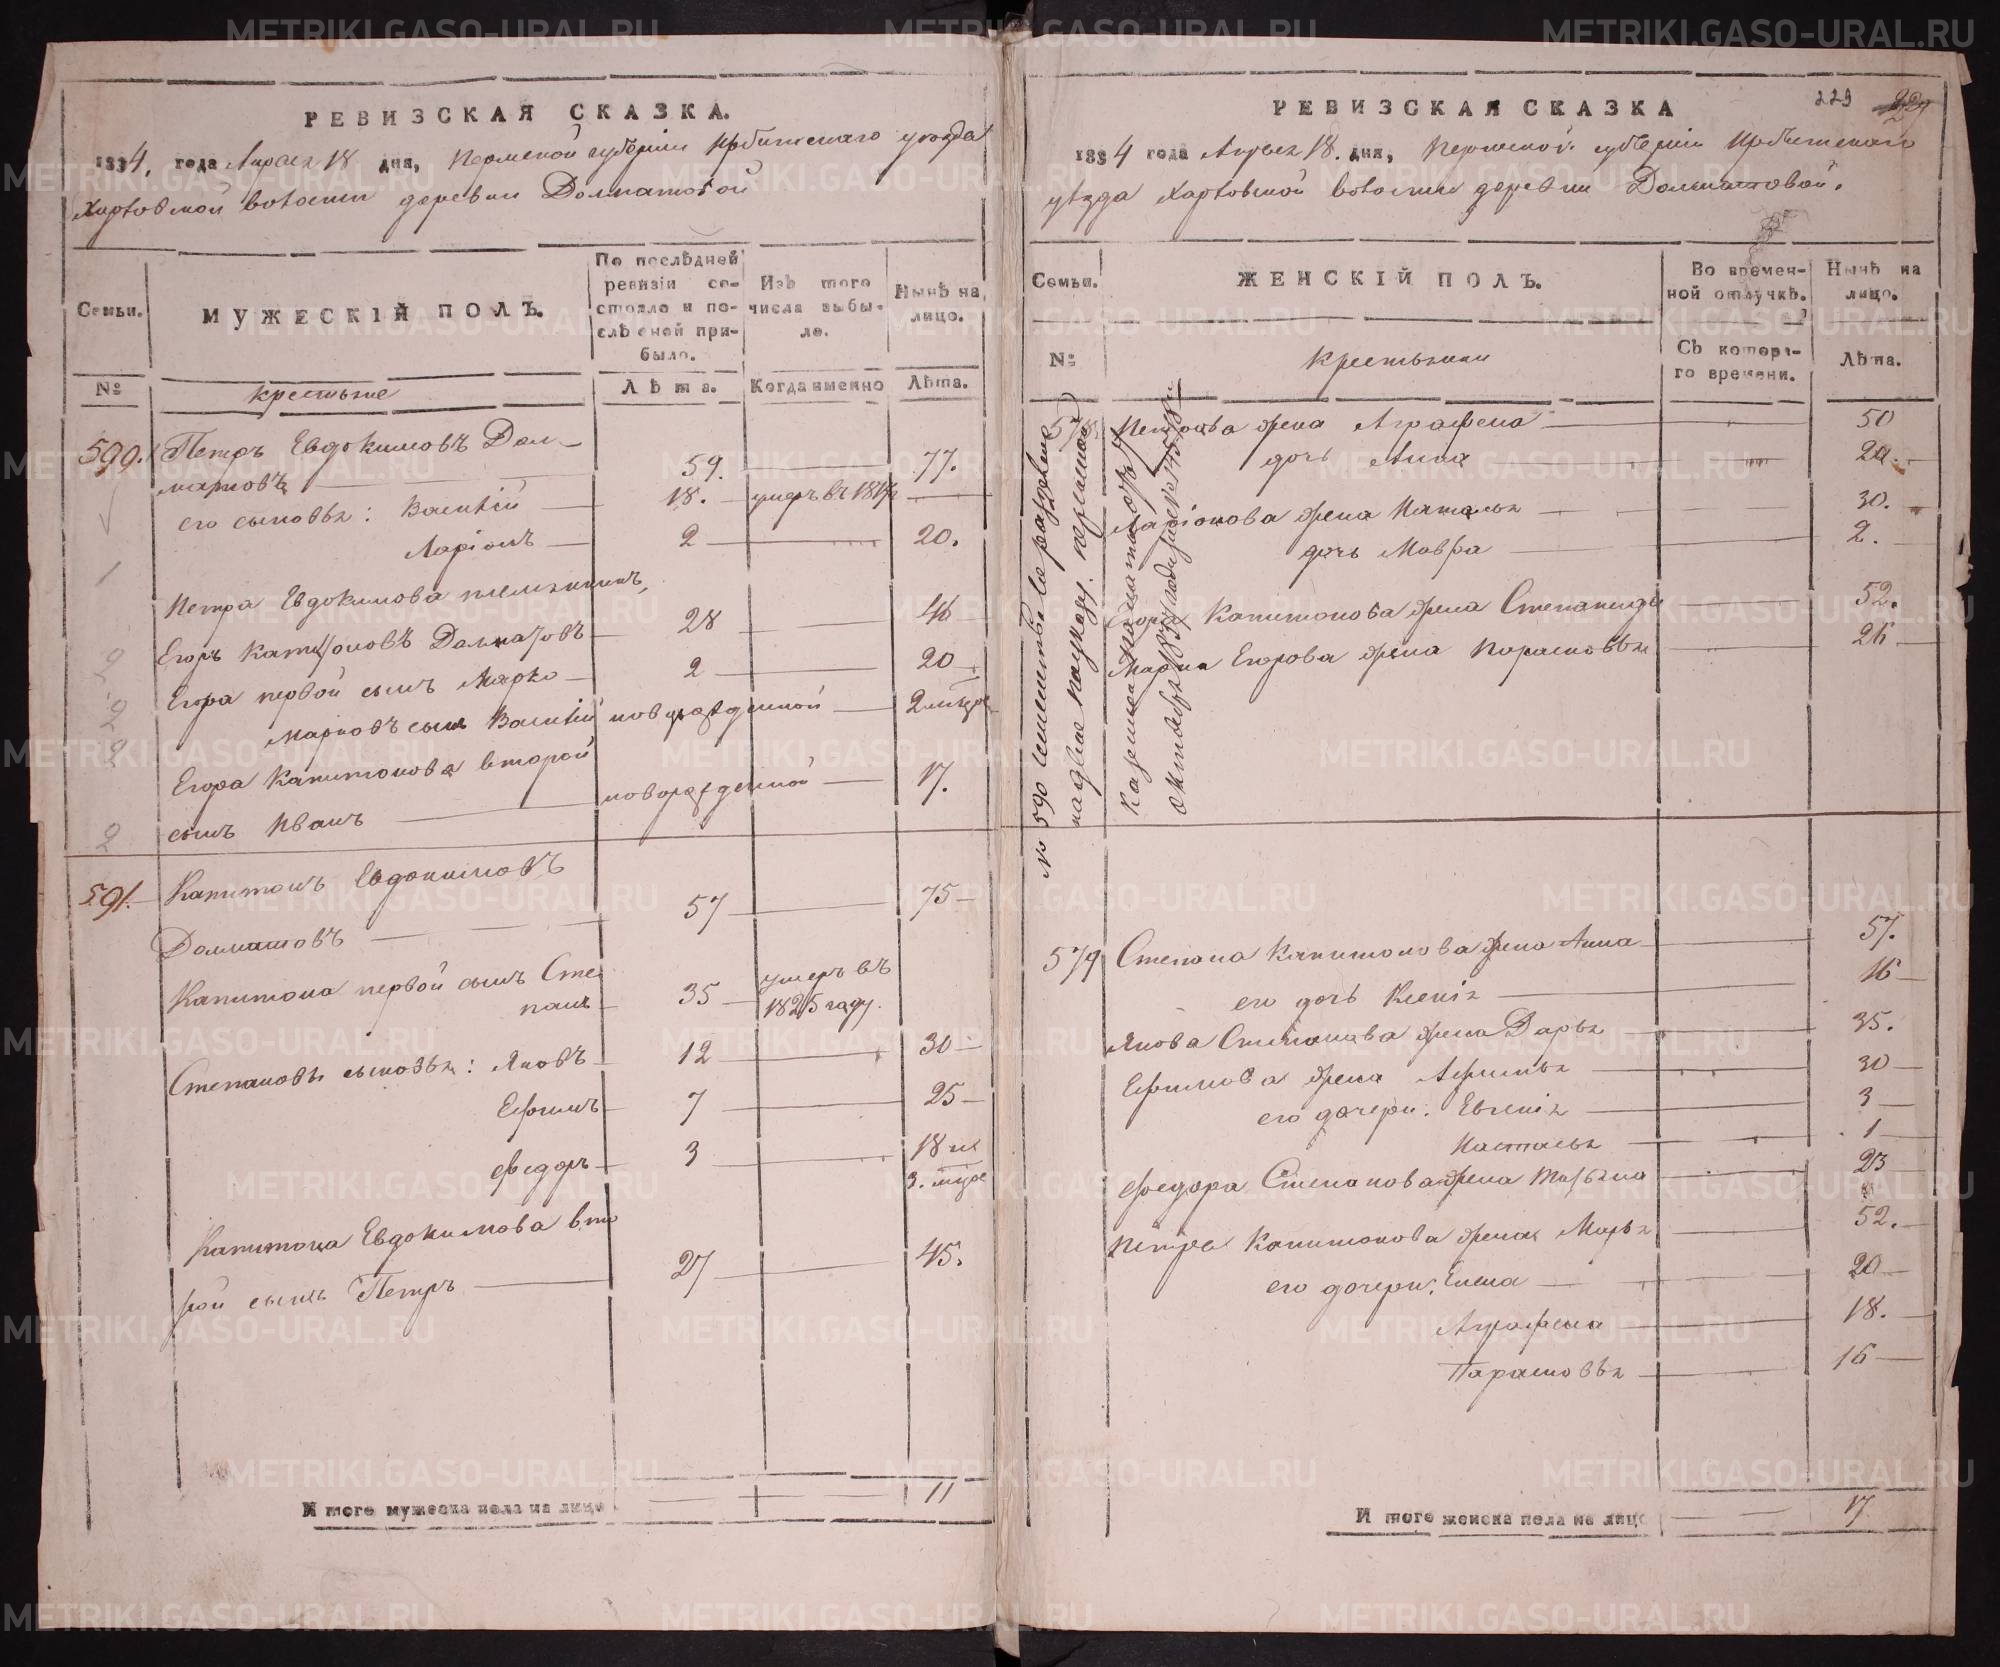 РЕВИЗСКАЯ СКАЗКА.
1834, года Апреля 18 дня, Пермской губернiи Ирбитскаго уезда
Харловской волости деревни Долматовой
Семьи.
МУЖЕСКIЙ ПОЛЪ.
По послѣдней ревизiи состояло и послѣ оной прибыло.
Изъ того числа выбыло.
Нынѣ на лицо.
№
крестьяне
Лѣта.
Когда именно
Лѣта.
590. Петръ Евдокимовъ Дол-
матовъ 59. 77.
его сыновья: Василiй 18. умеръ въ
Ларiонъ 2 20.
Петра Евдокимова племянникъ,
Егоръ Капитоновъ Долматовъ 28 46
Егора первой сынъ Марко 2 20
Марковъ сынъ Василiй новорожденной
Егора Капитонова второй
сынъ Иванъ новорожденной 17.
591. Капитонъ Евдокимовъ
Долматовъ 57 75
Капитона первой сынъ Сте
панъ 35 умеръ въ 1825 году.
Степановы сыновья: Яковъ 12 30
Ефимъ 7 25
Федоръ 3 18
Капитона Евдокимова вто
рой сынъ Петръ 27 45.
Итого мужеска пола на лицо 11
РЕВИЗСКАЯ СКАЗКА
229
1834 года Апреля 18. дня, Пермской губернiи Ирбитскаго
уезда Харловской волости деревни Долматовой.
Семьи.
ЖЕНСКIЙ ПОЛЪ.
Во временной отлучкѣ.
Нынѣ на лицо.
№
крестьянки
Съ котораго времени.
Лѣта.
578. Петрова жена Аграфена 50
дочь Анна 20
Ларiонова жена Наталья 30.
дочь Мавра 2.
Егора Капитонова жена Степанида 52.
Марка Егорова жена Парасковья 26
№ 590 семейство
579 Степана Капитонова жена Анна 57.
его дочь Ксенiя 16
Якова Степанова жена Дарья 35.
Ефимова жена Афимья 30
его дочери: Евгенiя 3
Настасья 1
Федора Степанова жена Татьяна 23
Петра Капитонова жена Марья 52.
его дочери: Елена 20
Аграфена 18.
Парасковья 16
Итого женска пола на лицо 17
METRIKI.GASO-URAL.RU